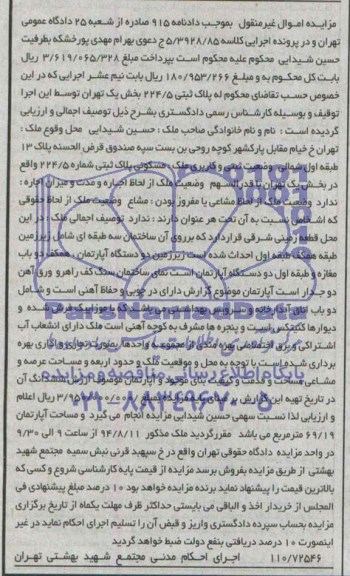 مزایده اموال غیرمنقول  بموجب دادنامه ۹۱۵ صادره از شعبه ۲۵ دادگاه عمومی
تهران و در پرونده اجرایی کلاسه ۵/۳۹۲۸/۸۵ج دعوی بهرام مهدی پورخشکه بطرفیت
حسین شیدایی  محکوم علیه محکوم است بپرداخت مبلغ ۳/۶۱۹/۰۶۵/۳۲۸ ریال
بابت کل محکوم به و مبلغ ۱۸۰/۹۵۳/۲۶۶ ریال بابت نیم عشر اجرایی که در این
خصوص حسب تقاضای محکوم له پلاک ثبتی ۲۲۴/۵ بخش یک تهران توسط این اجرا
توقیف و بوسیله کارشناس رسمی دادگستری بشرح ذیل توصیف اجمالی و ارزیابی
گردیده است : نام و نام خانوادگی صاحب ملک : حسین شیدایی  محل وقوع ملک :
تهران خ خیام مقابل پارکشهر کوچه روحی بن بست سپه صندوق قرض الحسنه پلاک ۱۳
طبقه اول شمالی وضعیت ثبتی و کاربری ملک : مسکونی پلاک ثبتی شماره ۲۲۴/۵ واقع
در بخش یک تهران با قدرالسهم  وضعیت ملک از لحاظ اجاره و مدت و میزان اجاره :
ندارد وضعیت ملک از لحاظ مشاعی یا مفروز بودن : مشاع  وضعیت ملک از لحاظ حقوقی
که اشخاص نسبت به آن تحت هر عنوان دارند : ندارد توصیف اجمالی ملک : در این
محل قطعه زمینی شرقی قراردارد که برروی آن ساختمان سه طبقه ای شامل زیرزمین
طبقه همکف طبقه اول احداث شده است زیرزمین دو دستگاه آپارتمان ، همکف دو باب
مغازه و طبقه اول دو دستگاه آپارتمان است نمای ساختمان سنگ کف راهرو ورق آهن
دو جدار است آپارتمان موضوع گزارش دارای در چوبی و حفاظ آهنی است و شامل
دو باب اتاق آبدارخانه و سرویس بهداشتی می باشد کف با موزاییک فرش شده و
دیوارها کنیتکس است و پنجره ها مشرف به کوچه آهنی است ملک دارای انشعاب آب
اشتراکی و برق اختصاصی بهره
برداری شده
مشاعی مساحت و قدمت و کیفیت بنای موجود و آپارتمان موصوف ارزش ششدانگ آن
در تاریخ تهیه این گزارش ریال اعلام
و ارزیابی لذا نسبت سهمی حسین شیدایی مزایده انجام  می گیرد  و مساحت آپارتمان
۶۹/۱۹ مترمربع می باشد  مقررگردید ملک مذکور ۹۴/۸/۱۱ از ساعت ۹ الی ۹/۳۰
در واحد مزایده  دادگاه حقوقی تهران واقع در خ سپهبد قرنی نبش سمیه مجتمع شهید
بهشتی  از طریق مزایده بفروش برسد مزایده از قیمت پایه کارشناسی شروع و کسی که
بالاترین قیمت را پیشنهاد نماید برنده مزایده خواهد بود ۱۰ درصد مبلغ پیشنهادی فی
المجلس از خریدار اخذ و الباقی می بایستی حداکثر ظرف مهلت یکماه از تاریخ برگزاری
مزایده بحساب سپرده دادگستری واریز و قبض آن را تسلیم اجرای احکام نماید در غیر
اینصورت ۱۰ درصد دریافتی بنفع دولت ضبط خواهد گردید
۱۱۰/۷۲۵۴۶  اجرای احکام مدنی مجتمع شهید بهشتی تهران
پایگاه اطلاع رسانی مناقصه و مزایده
۰۲۱-۸۸۳۴۹۶۷۰-۵